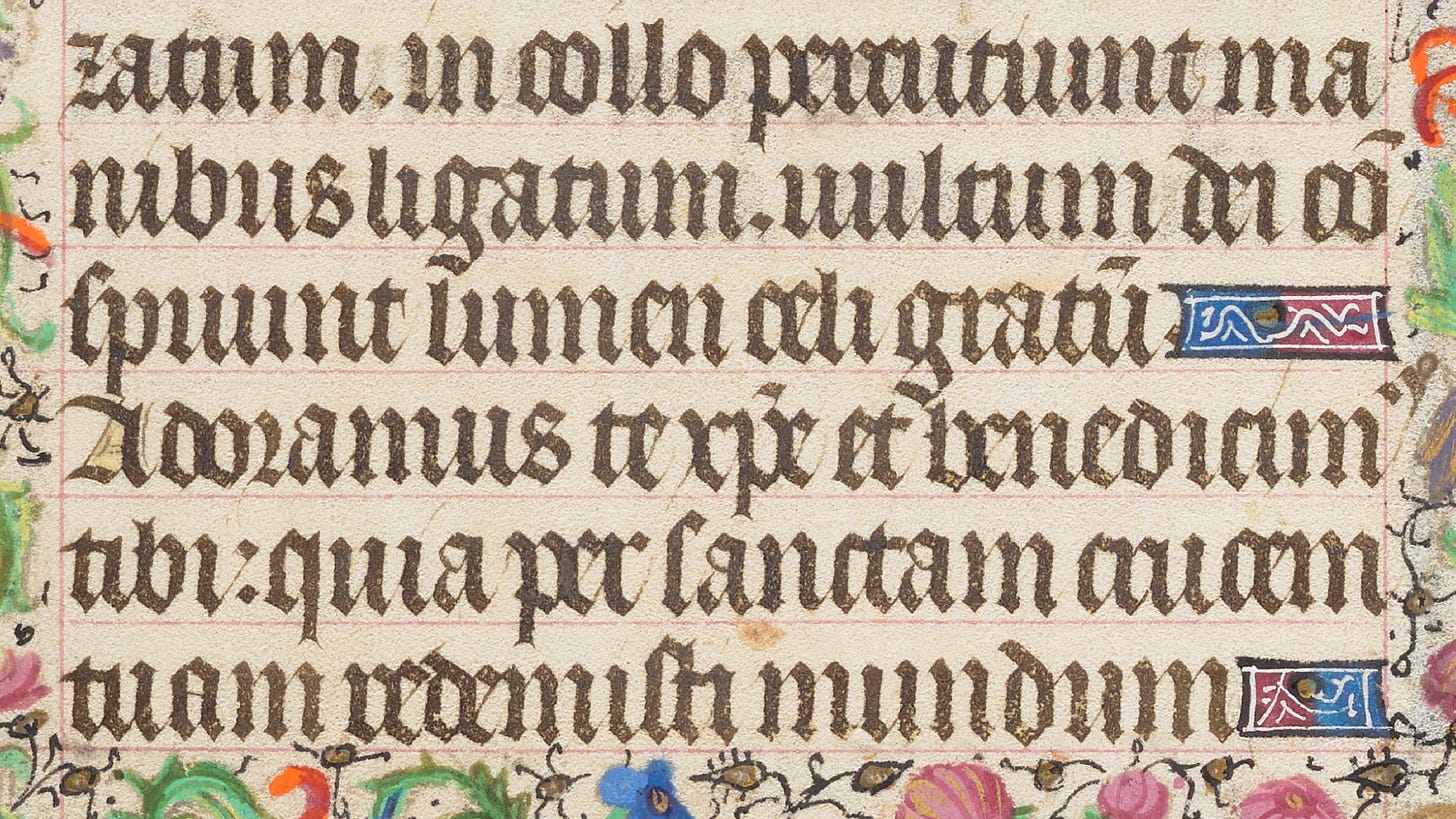 zatum. in collo percutiunt ma
nibus ligatum. uultum dei cō
spuunt lumen celi gratū
Adoramus te xp̄e et benedicim᾽
tibi: quia per sanctam crucem
tuam redemisti mundum